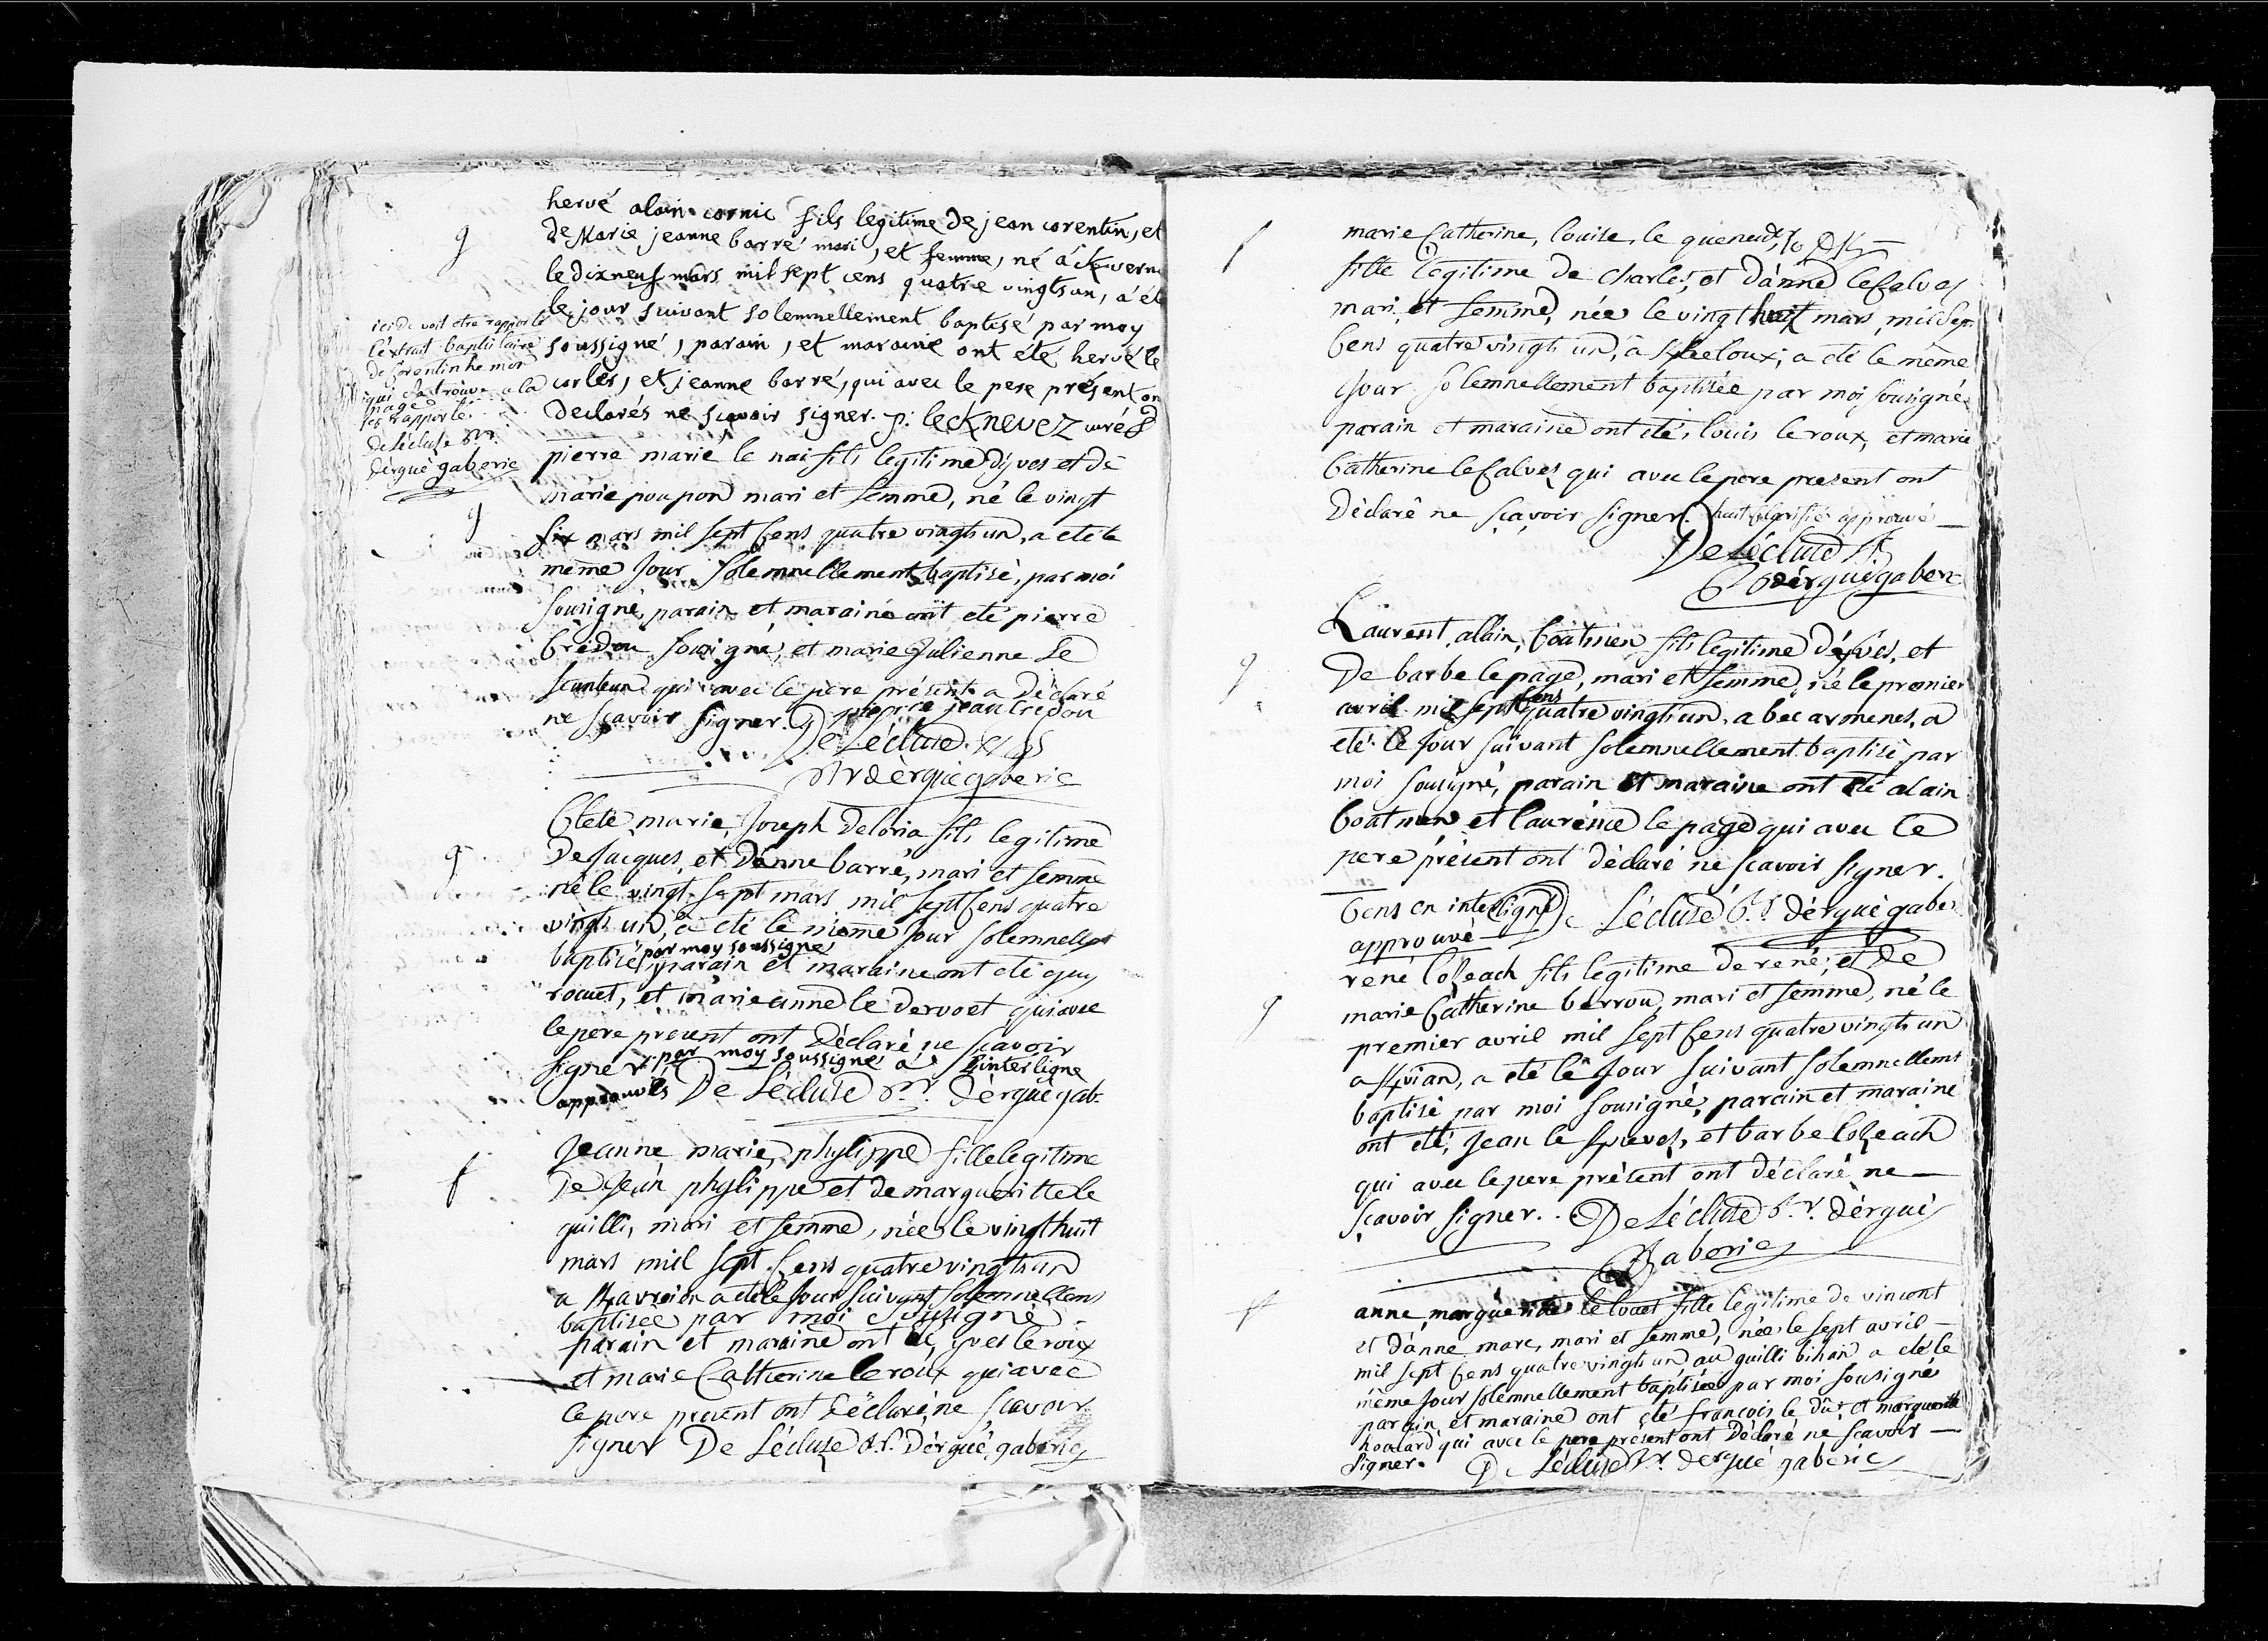 g
hervé alain cornic fils legitime de jean corentin, et
de Marie jeanne barré mari, et femme, né à
le dix neuf mars mil sept cens quatre vingts un, a été
le jour suivant solemnellement baptisé par moy
soussigné, parain, et maraine ont été hervé le
corles, et jeanne barré, qui avec le pere présent on
declarés ne sçavoir signer. p: le Knevez curé
ici de voit etre rapporté
l'extrait baptistaire
de Corentin he mon
qui se trouve a la
page
rapporté
de Lécluse Rr.
dérgué gaberic
g
pierre marie le nai fils legitime d'yves et de
marie poupon mari et femme, né le vingt
six mars mil sept cens quatre vingts un, a eté le
même jour solemnellement baptisé, par moi
sousigné, parain et maraine ont eté pierre
Credou sousigné, et marie Julienne Le
qui avec le pere présent a déclaré
ne sçavoir signer. pierre jean credou
De Lécluse
Rr dèrgué gaberic
g
Clete marie, Joseph Deloria fils legitime
De Jacques, et D'anne barré, mari et femme
né le vingt-sept mars mil sept cens quatre
vingts un, a eté le même jour solemnellemt
baptisé par moy soussigné, parain et maraine ont eté guy
rouet, et marie anne le dervoet qui avec
le pere present ont Déclaré ne scavoir
signer. par moy soussigné a l'interligne
approuvés De Lécluse Rr. dérgué gab.
f
Jeanne marie, phylippe fille legitime
De Jean phylippe et de margueritte le
quilli, mari et femme, née le vingt huit
mars mil sept cens quatre vingts un
a eté le jour suivant solemnellemt
baptisée par moi sousigné
parain et maraine ont eté, yves le roux
et marie Catherine le roux qui avec
le pere present ont Déclaré ne scavoir
signer De Lécluse Rr. Dérgué gaberic
f
marie Catherine, louise, le queneudec
fille legitime de charles, et d'anne le Calvez
mari, et femme, née le vingt huit mars mil sept
Cens quatre vingts un, à a eté le même
Jour solemnellement baptisée par moi sousigné
parain et maraine ont eté, louis le roux, et marie
Catherine le Calvez qui avec le pere present ont
Déclaré ne sçavoir signer. huit approuvé
De Lécluse Rr
dérgué gaberic
g
Laurent, alain, Coatmen fils legitime d'yves, et
De barbe le page, mari et femme, né le premier
avril mil sept cens quatre vingts un, a bec ar menes, a
eté le Jour suivant solemnellement baptisé par
moi sousigné, parain et maraine ont eté alain
Coatmen et laurence le page qui avec le
pere présent ont déclaré ne scavoir signer.
Cens en interligne De Lécluse Rr. dérgué gaber
approuvé
g
rené Cozeach fils legitime de rené, et de
marie Catherine berrou, mari et femme, né le
premier avril mil sept cens quatre vingts un
a eté le Jour suivant solemnellemt
baptisé par moi sousigné, parain et maraine
ont eté, Jean le et barbe Cozeach
qui avec le pere présent ont déclaré ne
sçavoir signer. De Lécluse Rr. dérgué
gaberic
f
anne, marguerite le louet fille legitime de vincent
et d'anne marc, mari et femme, née le sept avril
mil sept cens quatre vingts un au quilli bihan a eté le
même Jour solemnellement baptisée par moi sousigné
parain et maraine ont eté francois le dû, et marguerite
hoalard qui avec le pere présent ont Déclaré ne scavoir
signer. De Lécluse Rr. dergué gaberic